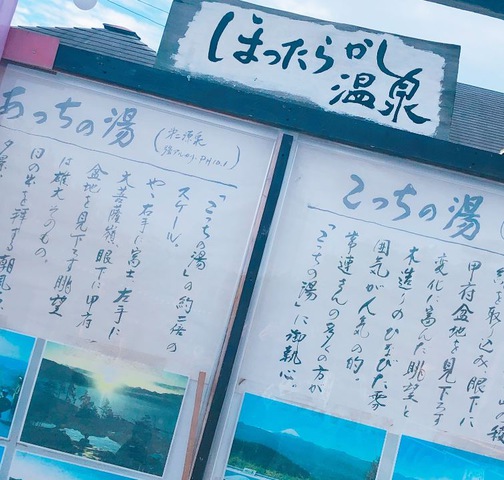 ほったらかし
温泉
あっちの湯
(第二源泉
PH10.1)
「こっちの湯」の約二倍の
スケール。
や、右手に富士、左手に
大菩薩嶺、眼下に甲府
盆地を見下ろす眺望
は雄大そのもの。
日の出を拝する朝風
夕景
こっちの湯
取り込み、眼下に
甲府盆地を見下ろす
変化に富んだ眺望と
木造りのひなびた雰
囲気が人気の的。
常連さんの多くの方が
「こっちの湯」に御執心。